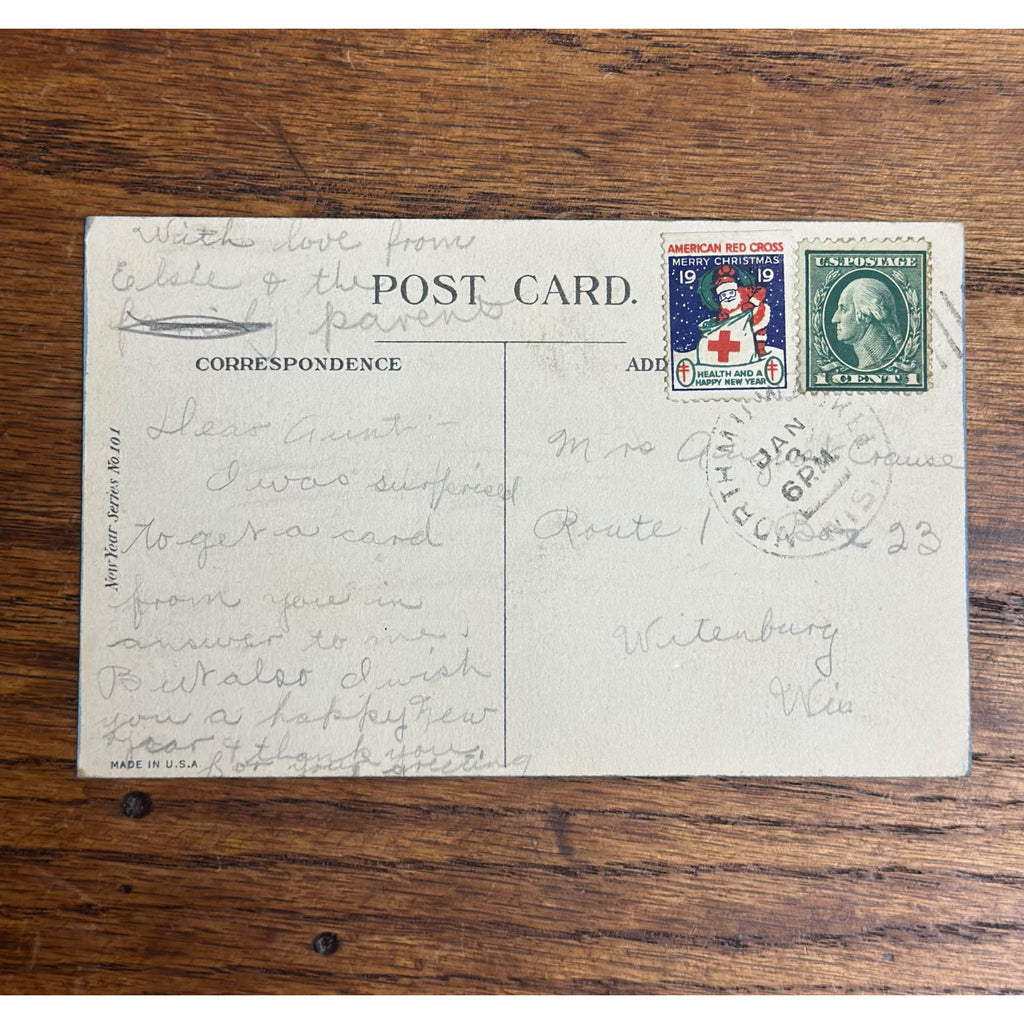 With love from
Elsie & the
family parents
POST CARD.
CORRESPONDENCE
ADD
AMERICAN RED CROSS
MERRY CHRISTMAS
19 19
HEALTH AND A
HAPPY NEW YEAR
U.S. POSTAGE
1 CENT 1
NORTH MILWAUKEE
WIS.
JAN
3
6 PM
New Year Series No. 101
Dear Aunt -
I was surprised
to get a card
from you in
answer to me.
But also I wish
you a happy New
Year & thank you
for your greeting
MADE IN U.S.A.
Mrs Crause
Route 1 Box 23
Witenburg
Wis